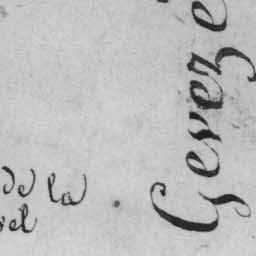 de la
vel
Geveze